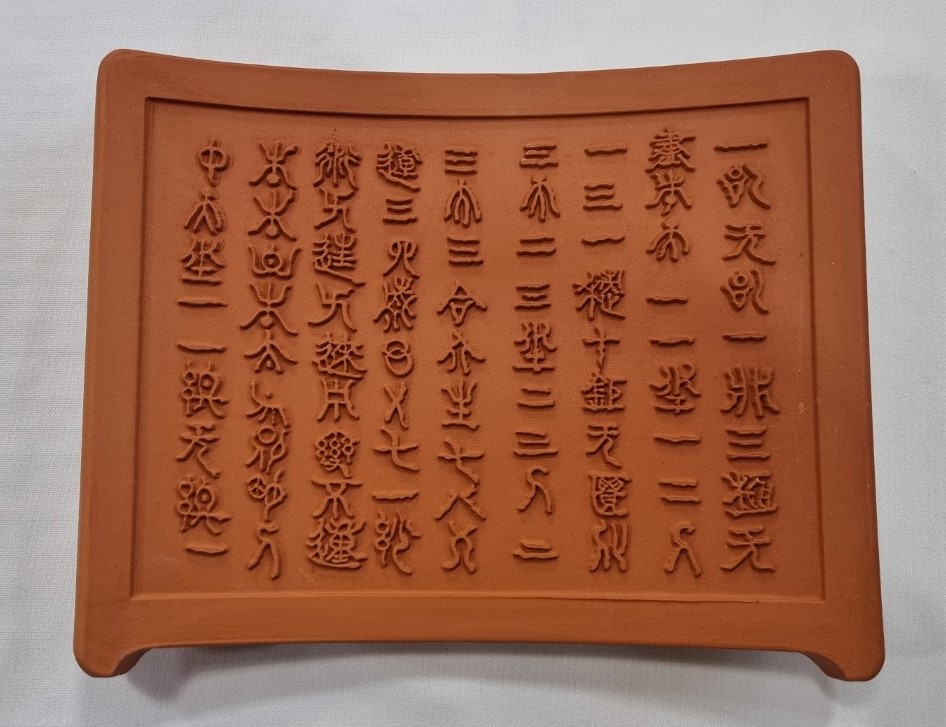 一始无始一析三極无
盡本天一一地一二人
一三一積十鉅无匱化
三天二三地二三人二
三大三合六生七八九
運三四成環五七一妙
衍万往万來用變不動
本本心本太陽昂明人
中天地一一終无終一